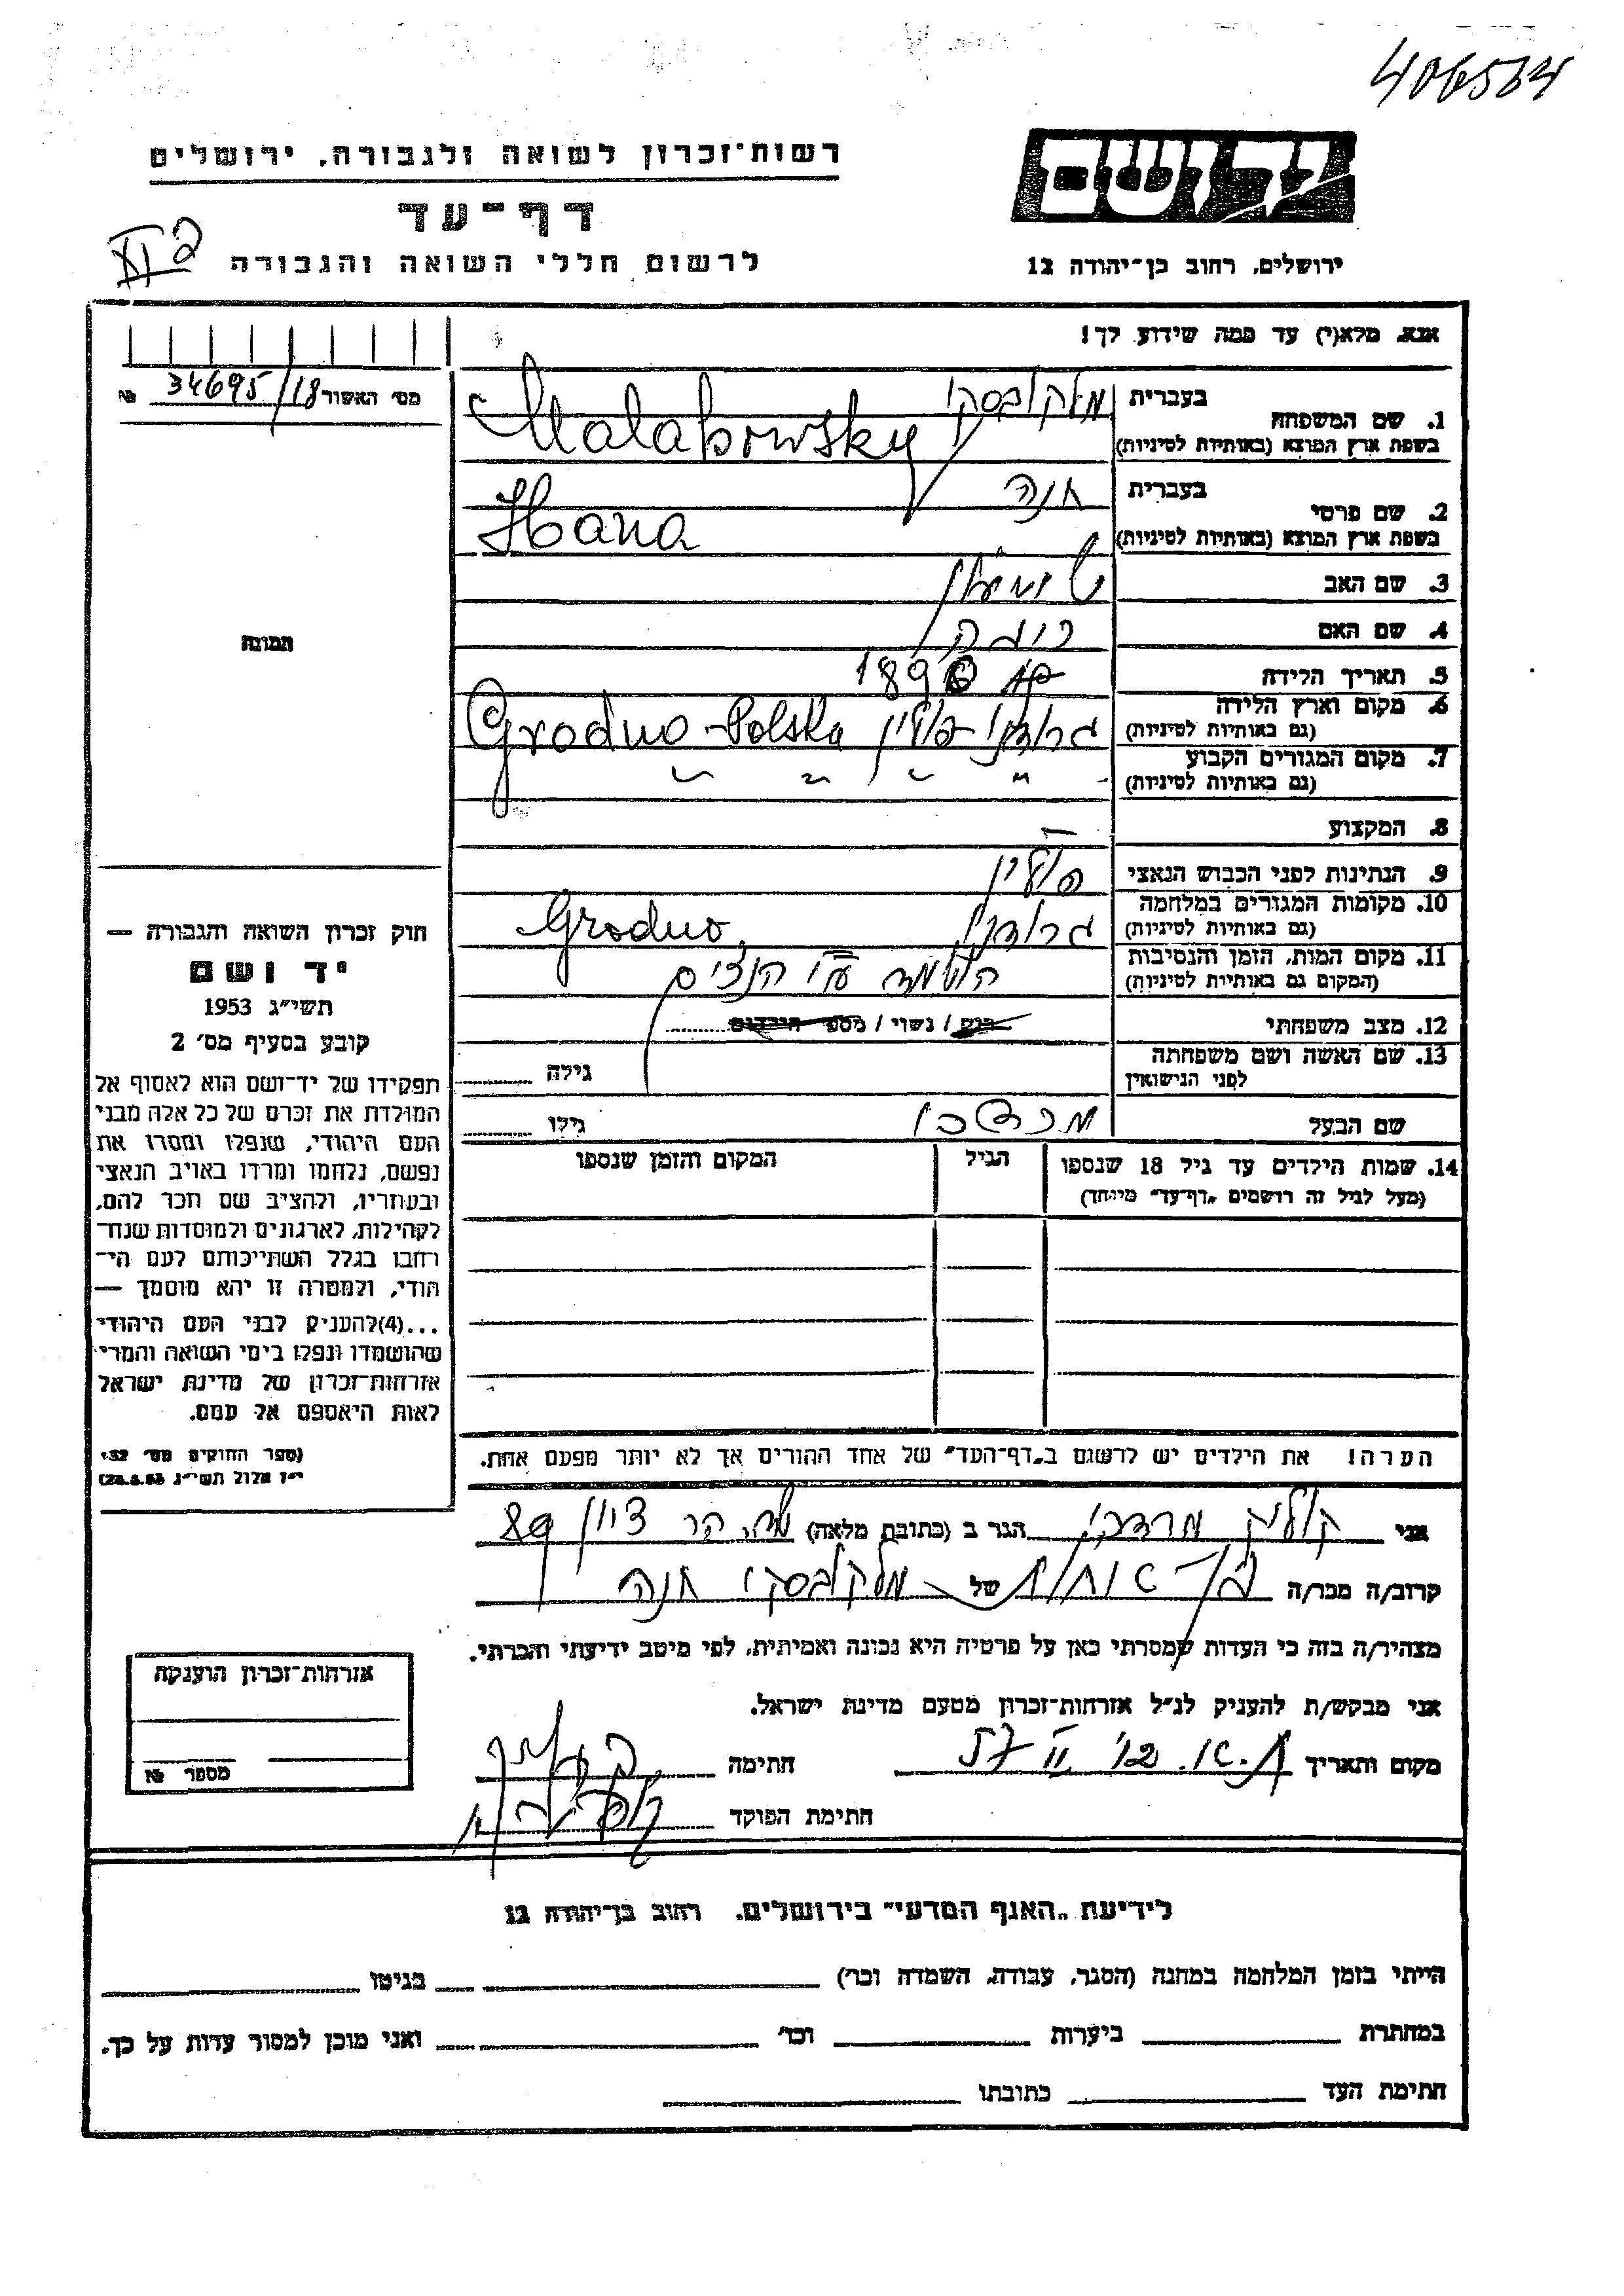 406564
ידושם
רשות־זכרון לשואה ולגבורה, ירושלים
דף־עד
לרשום חללי השואה והגבורה
ירושלים, רחוב בן־יהודה 12
אנא, מלא(י) עד כמה שידוע לך!
מס׳ האשור 34695/18 №
1. שם המשפחה
בעברית מלקובסקי
בשפת ארץ המוצא (באותיות לטיניות) Malabowsky
2. שם פרטי
בעברית חנה
בשפת ארץ המוצא (באותיות לטיניות) Hana
3. שם האב
4. שם האם
5. תאריך הלידה
6. מקום וארץ הלידה גרודנו־פולין Grodno-Polska
(גם באותיות לטיניות)
7. מקום המגורים הקבוע " " " "
(גם באותיות לטיניות)
8. המקצוע —
9. הנתינות לפני הכבוש הנאצי פולין
10. מקומות המגורים במלחמה גרודנו, Grodno
(גם באותיות לטיניות)
11. מקום המות, הזמן והנסיבות הושמדה ע"י הנצים
(המקום גם באותיות לטיניות)
12. מצב משפחתי רווק / נשוי / מספר הילדים
13. שם האשה ושם משפחתה
לפני הנישואין
גילה
שם הבעל מרדכי גילו
14. שמות הילדים עד גיל 18 שנספו
(מעל לגיל זה רושמים „דף־עד" מיוחד)
הגיל
המקום והזמן שנספו
הערה! את הילדים יש לרשום ב„דף־העד" של אחד ההורים אך לא יותר מפעם אחת.
תמונה
חוק זכרון השואה והגבורה —
יד ושם
תשי״ג 1953
קובע בסעיף מס׳ 2
תפקידו של יד־ושם הוא לאסוף אל
המולדת את זכרם של כל אלה מבני
העם היהודי, שנפלו ומסרו את
נפשם, נלחמו ומרדו באויב הנאצי
ובעוזריו, ולהציב שם וזכר להם,
לקהילות, לארגונים ולמוסדות שנח־
רבו בגלל השתייכותם לעם הי־
הודי, ולמטרה זו יהא מוסמך —
...(4)להעניק לבני העם היהודי
שהושמדו ונפלו בימי השואה והמרי
אזרחות־זכרון של מדינת ישראל
לאות היאספם אל עמם.
(ספר החוקים מס׳ 132,
י״ז אלול תשי״ג 28.8.53)
אני קוליק מרדכי הגר ב (כתובת מלאה) הר ציון 89
קרוב/ה מכר/ה בן־אחות של מלקובסקי חנה
מצהיר/ה בזה כי העדות שמסרתי כאן על פרטיה היא נכונה ואמיתית, לפי מיטב ידיעתי והכרתי.
אני מבקש/ת להעניק לנ״ל אזרחות־זכרון מטעם מדינת ישראל.
מקום ותאריך ת.א. 12 II 57 חתימה
חתימת הפוקד
אזרחות־זכרון הוענקה
מספר №
לידיעת „האגף המדעי" בירושלים, רחוב בן־יהודה 12
הייתי בזמן המלחמה במחנה (הסגר, עבודה, השמדה וכו׳) בגיטו
במחתרת ביערות וכו׳ ואני מוכן למסור עדות על כך.
חתימת העד כתובתו